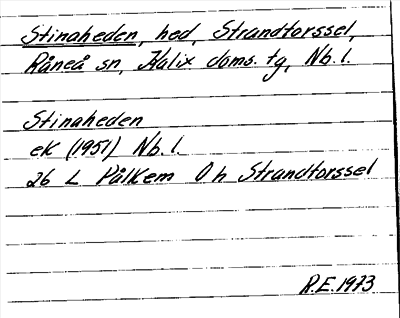 Stinaheden, hed, Strandtorssel,
Råneå sn, Kalix doms. tg, Nb. l.
Stinaheden
ek (1951) Nb. l.
26 L Pålkem O h Strandtorssel
R.E. 1973